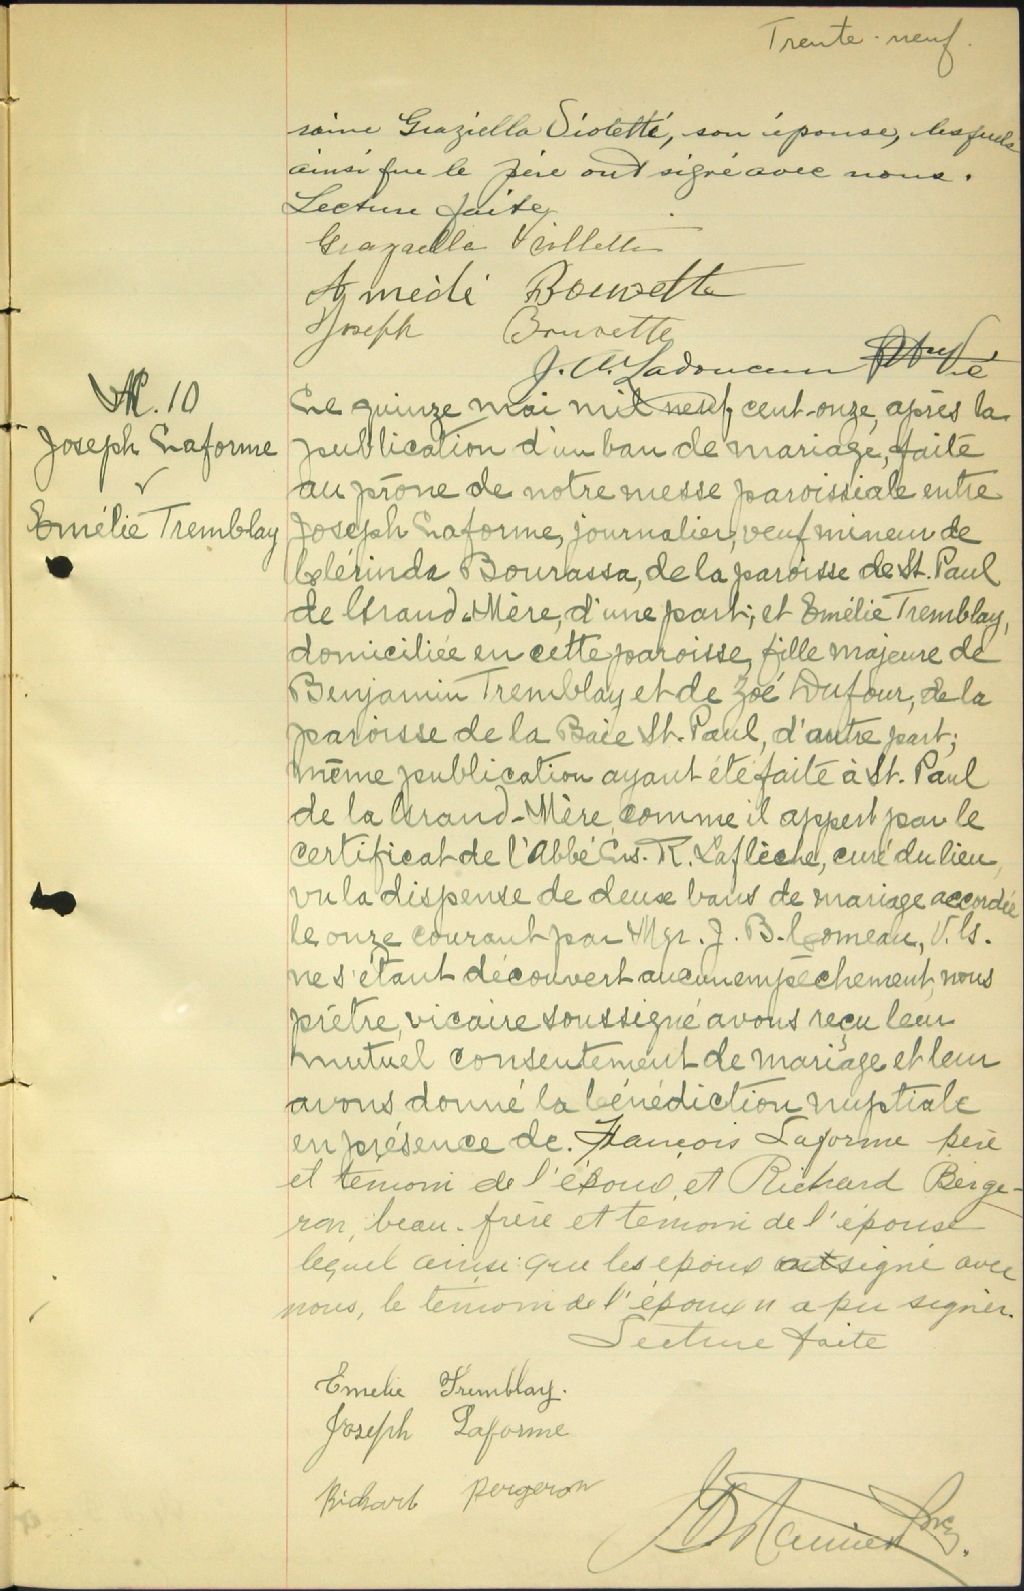 Trente-neuf.
raine Graziella Violette, son épouse, lesquels
ainsi que le père ont signé avec nous.
Lecture faite,
Grazaella Viollette
Amédé Bouvette
Joseph Bouvette
J. A. Ladouceur Ptre
M. 10
Joseph Laforme
Emélie Tremblay
Le quinze mai mil neuf cent-onze, après la
publication d'un ban de mariage, faite
au prône de notre messe paroissiale entre
Joseph Laforme, journalier, veuf mineur de
Clérinda Bourassa, de la paroisse de St. Paul
de Grand-Mère, d'une part; et Emélie Tremblay,
domiciliée en cette paroisse, fille majeure de
Benjamin Tremblay et de Zoé Dufour, de la
paroisse de la Baie St. Paul, d'autre part;
même publication ayant été faite à St. Paul
de la Grand-Mère, comme il appert par le
certificat de l'Abbé Ls. R. Laflèche, curé du lieu,
vu la dispense de deux bans de mariage accordée
le onze courant par Mgr. J. B. Comeau, V. G.
ne s'étant découvert aucun empêchement, nous
prêtre, vicaire soussigné avons reçu leur
mutuel consentement de mariage et leur
avons donné la bénédiction nuptiale
en présence de François Laforme père
et témoin de l'époux, et Richard Berge-
ron, beau-frère et temoin de l'épouse
lequel ainsi que les epoux ont signé avec
nous, le témoin de l'époux n'a pu signer.
Lecture faite
Emelie Tremblay.
Joseph Laforme
Richart Bergeron